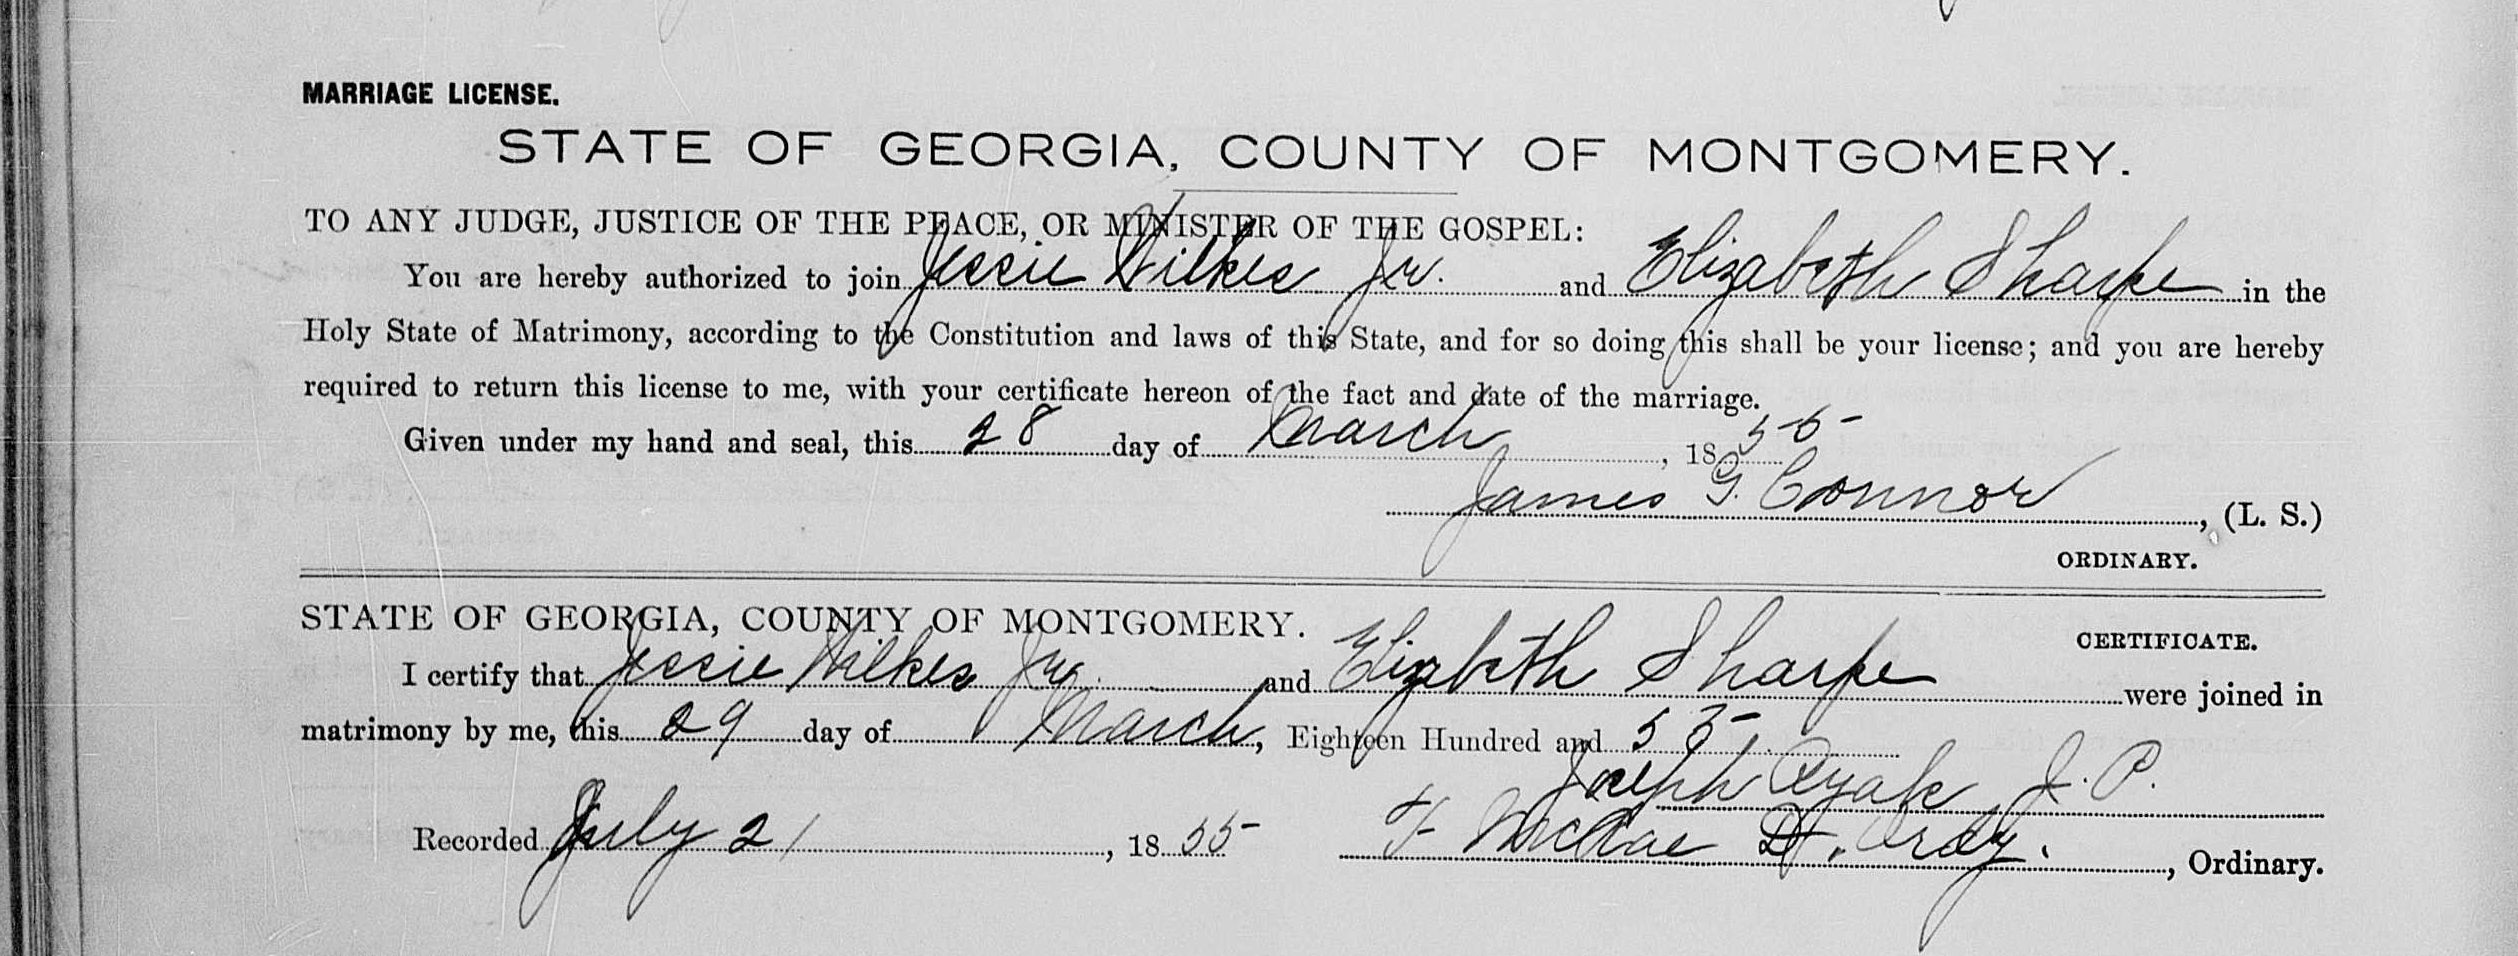 MARRIAGE LICENSE.
STATE OF GEORGIA, COUNTY OF MONTGOMERY.
TO ANY JUDGE, JUSTICE OF THE PEACE, OR MINISTER OF THE GOSPEL:
You are hereby authorized to join Jessie Wilkes Jr. and Elizabeth Sharpe in the
Holy State of Matrimony, according to the Constitution and laws of this State, and for so doing this shall be your license; and you are hereby
required to return this license to me, with your certificate hereon of the fact and date of the marriage.
Given under my hand and seal, this 28 day of March, 1855
James G. Connor, (L. S.)
ORDINARY.
STATE OF GEORGIA, COUNTY OF MONTGOMERY.
CERTIFICATE.
I certify that Jessie Wilkes Jr. and Elizabeth Sharpe were joined in
matrimony by me, this 29 day of March, Eighteen Hundred and 55.
Joseph J. P.
Recorded July 21, 1855 McRae D. Ordy., Ordinary.